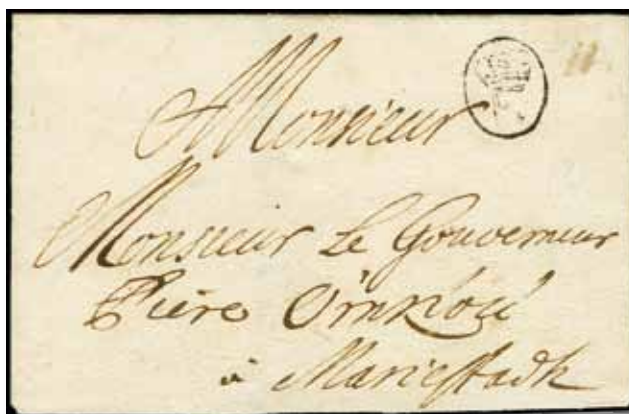 A Monsieur
Monsieur Le Gouverneur
Piere Örnklou
à Mariestadh